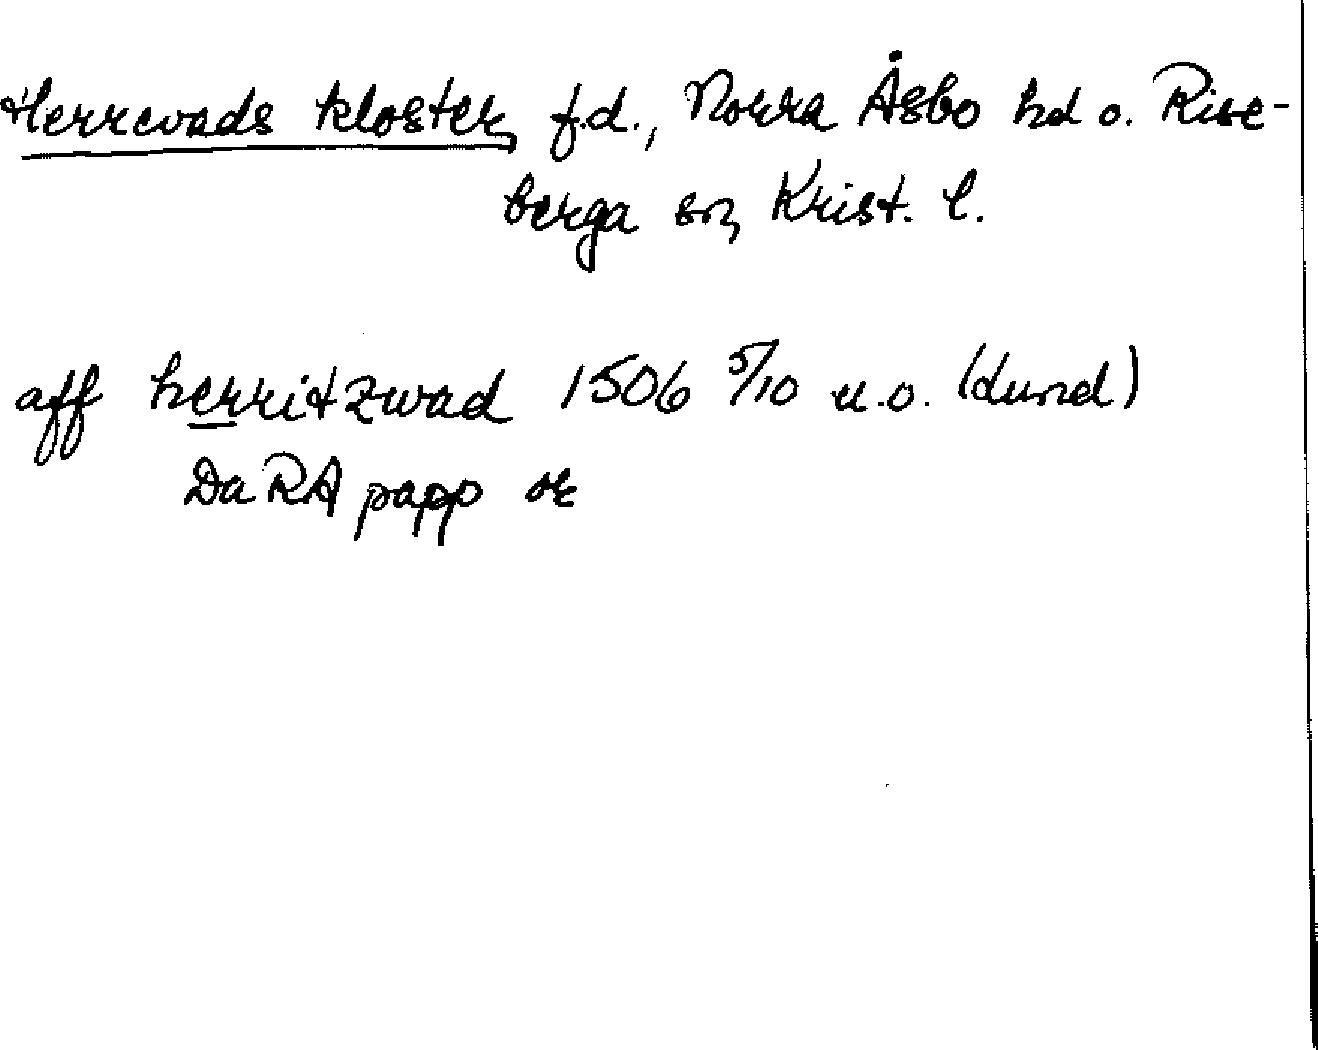 Herrevads kloster, f.d., Norra Åsbo hd o. Rise-
berga sn, Krist. l.
aff herritzwad 1506 5/10 u.o. (Lund)
DaRA papp or